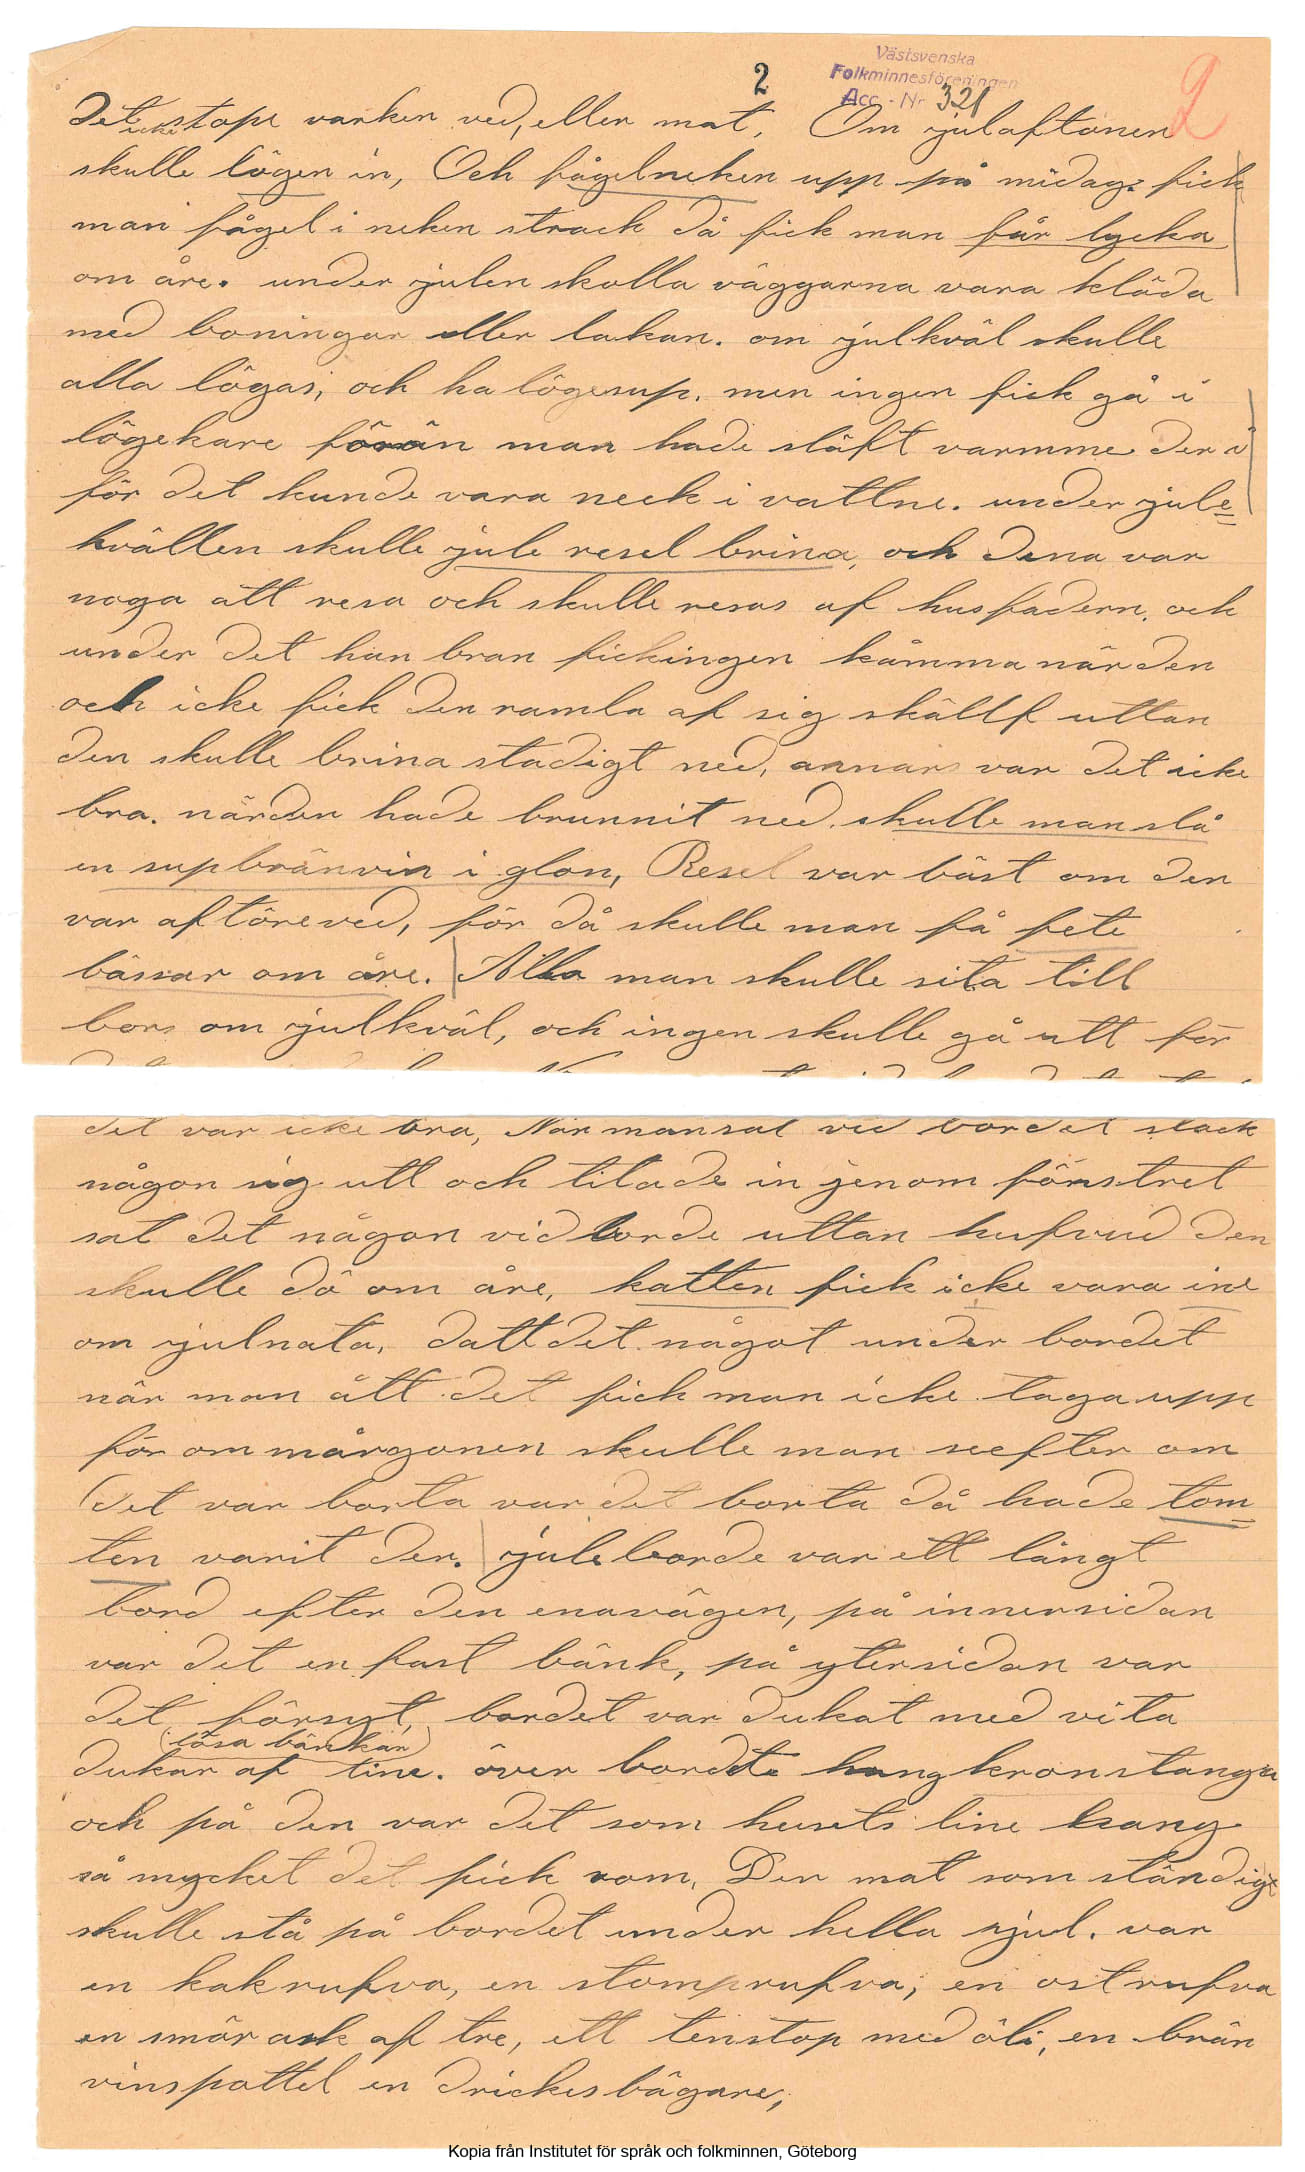 2
Västsvenska
Folkminnesföreningen
Acc. - Nr 321
2
Det icke stope varken ved, eller mat, Om julaftonen
skulle lögen in, Och fågelneken upp på midag. fick
man fågel i neken strack då fick man får lycka
om åre. under julen skolla väggarna vara kläda
med boningar eller lakan. om julkväl skulle
alla lögas, och ha lögesup, men ingen fick gå i
lögekare förän man hade släft varmme der i
för det kunde vara neck i vattne. under jule=
kvällen skulle jule resel brina, och dena var
noga att resa och skulle resas af husfadern, och
under det han bran fickingen kämma när den
och icke fick den ramla af sig skällf uttan
den skulle brina stadigt ned, annars var det icke
bra. närden hade brunnit ned skulle man slå
en supbränvin i glon, Resel var bäst om den
var af töreved, för då skulle man få fete
bässar om åre. Alla man skulle sita till
bors om julkväl, och ingen skulle gå utt för
det var icke bra, När mansat vid bordet stack
någon sig utt och titade in jenom fönstret
sat det någon vid borde uttan hufvud den
skulle dö om åre, katten fick icke vara ine
om julnata, datt det något under bordet
när man ått det fick man icke taga upp
för om mårgonen skulle man seefter om
det var borta var det borta då hade tom=
ten varit der. juleborde var ett långt
bord efter den enavägen, på innersidan
var det en fast bänk, på ytersidan var
det försyt, bordet var dukat med vita
(lösa bänkar)
dukar af line. över bordte hang kronstange
och på den var det som husets line hang
så mycket det fick rom, Den mat som ständigt
skulle stå på bordet under hella jul. var
en kakrufva, en stomprufva, en ostrufva
en smör ask af tre, ett tenstop med öli, en brän
vinspottel en drickesbägare,
Kopia från Institutet för språk och folkminnen, Göteborg